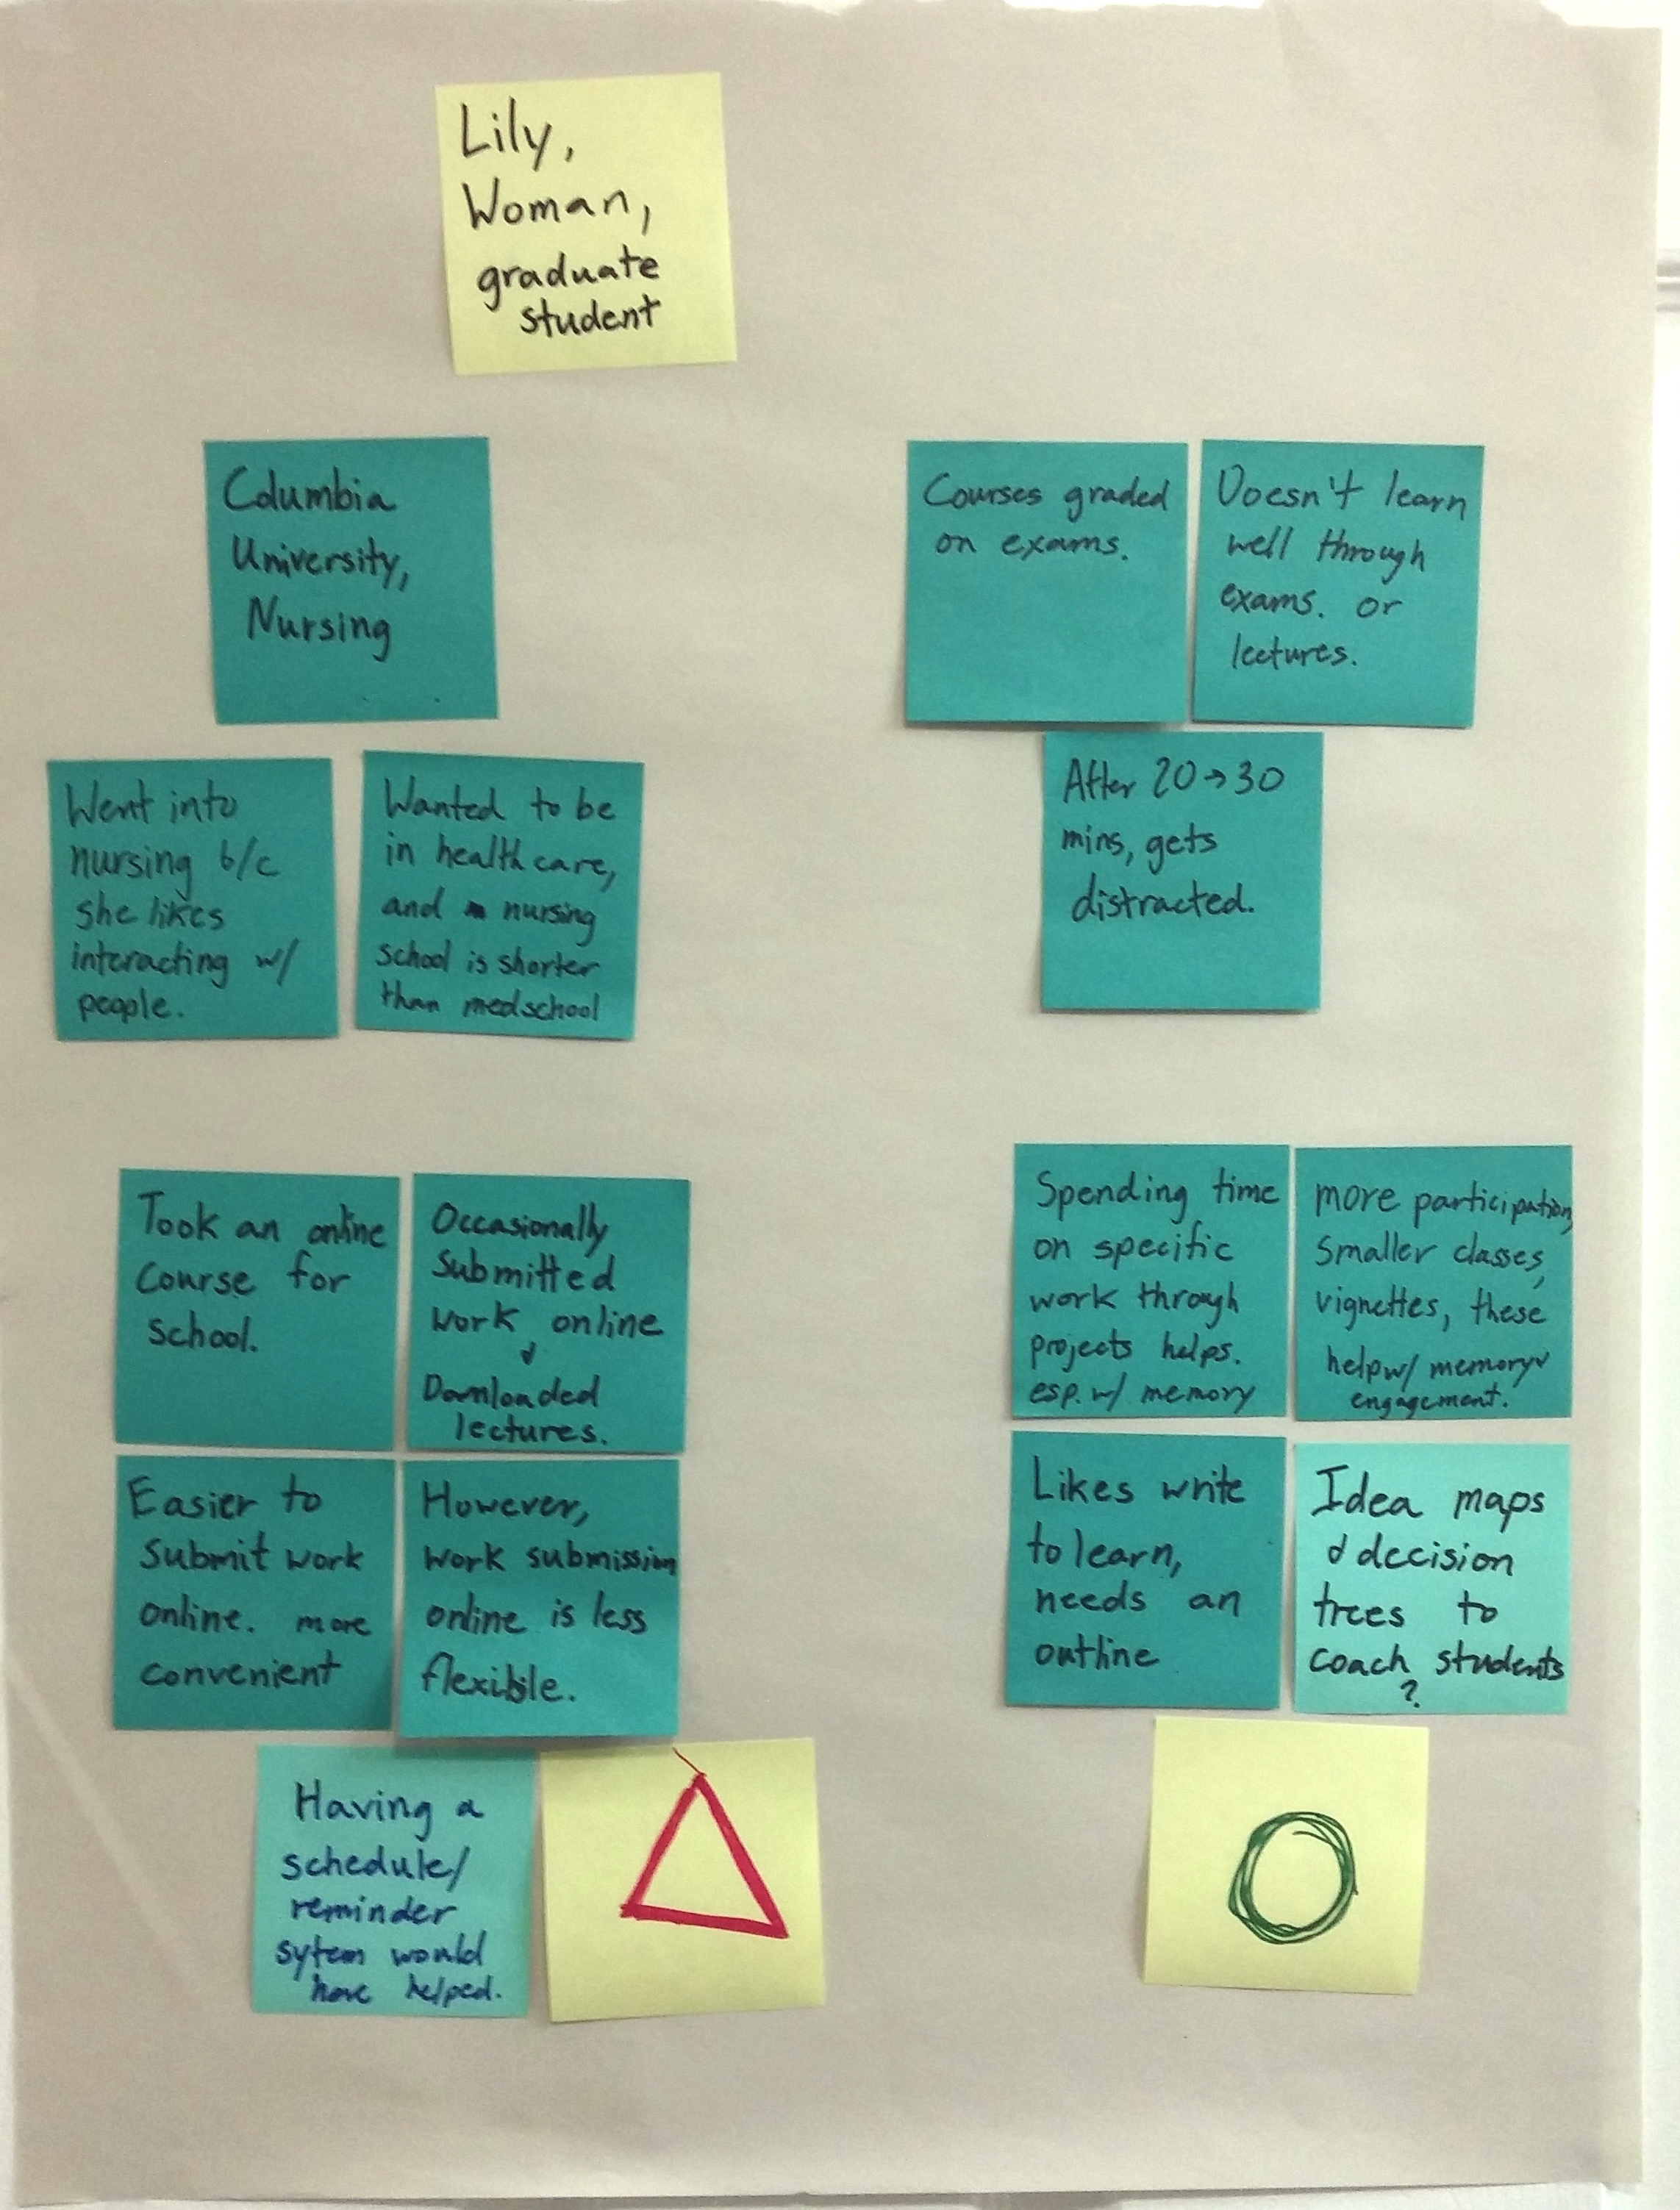 Lily,
Woman,
graduate
student
Columbia
University,
Nursing
Went into
nursing b/c
she likes
interacting w/
people.
Wanted to be
in healthcare,
and nursing
school is shorter
than medschool
Courses graded
on exams.
Doesn't learn
well through
exams. or
lectures.
After 20→30
mins, gets
distracted.
Took an online
course for
school.
Occasionally
submitted
work online
&
Downloaded
lectures.
Easier to
submit work
online. more
convenient
However,
work submission
online is less
flexible.
Having a
schedule/
reminder
sytem would
have helped.
Spending time
on specific
work through
projects helps.
esp. w/ memory
more participation,
smaller classes,
vignettes, these
help w/ memory &
engagement.
Likes write
to learn,
needs an
outline
Idea maps
& decision
trees to
coach students
?